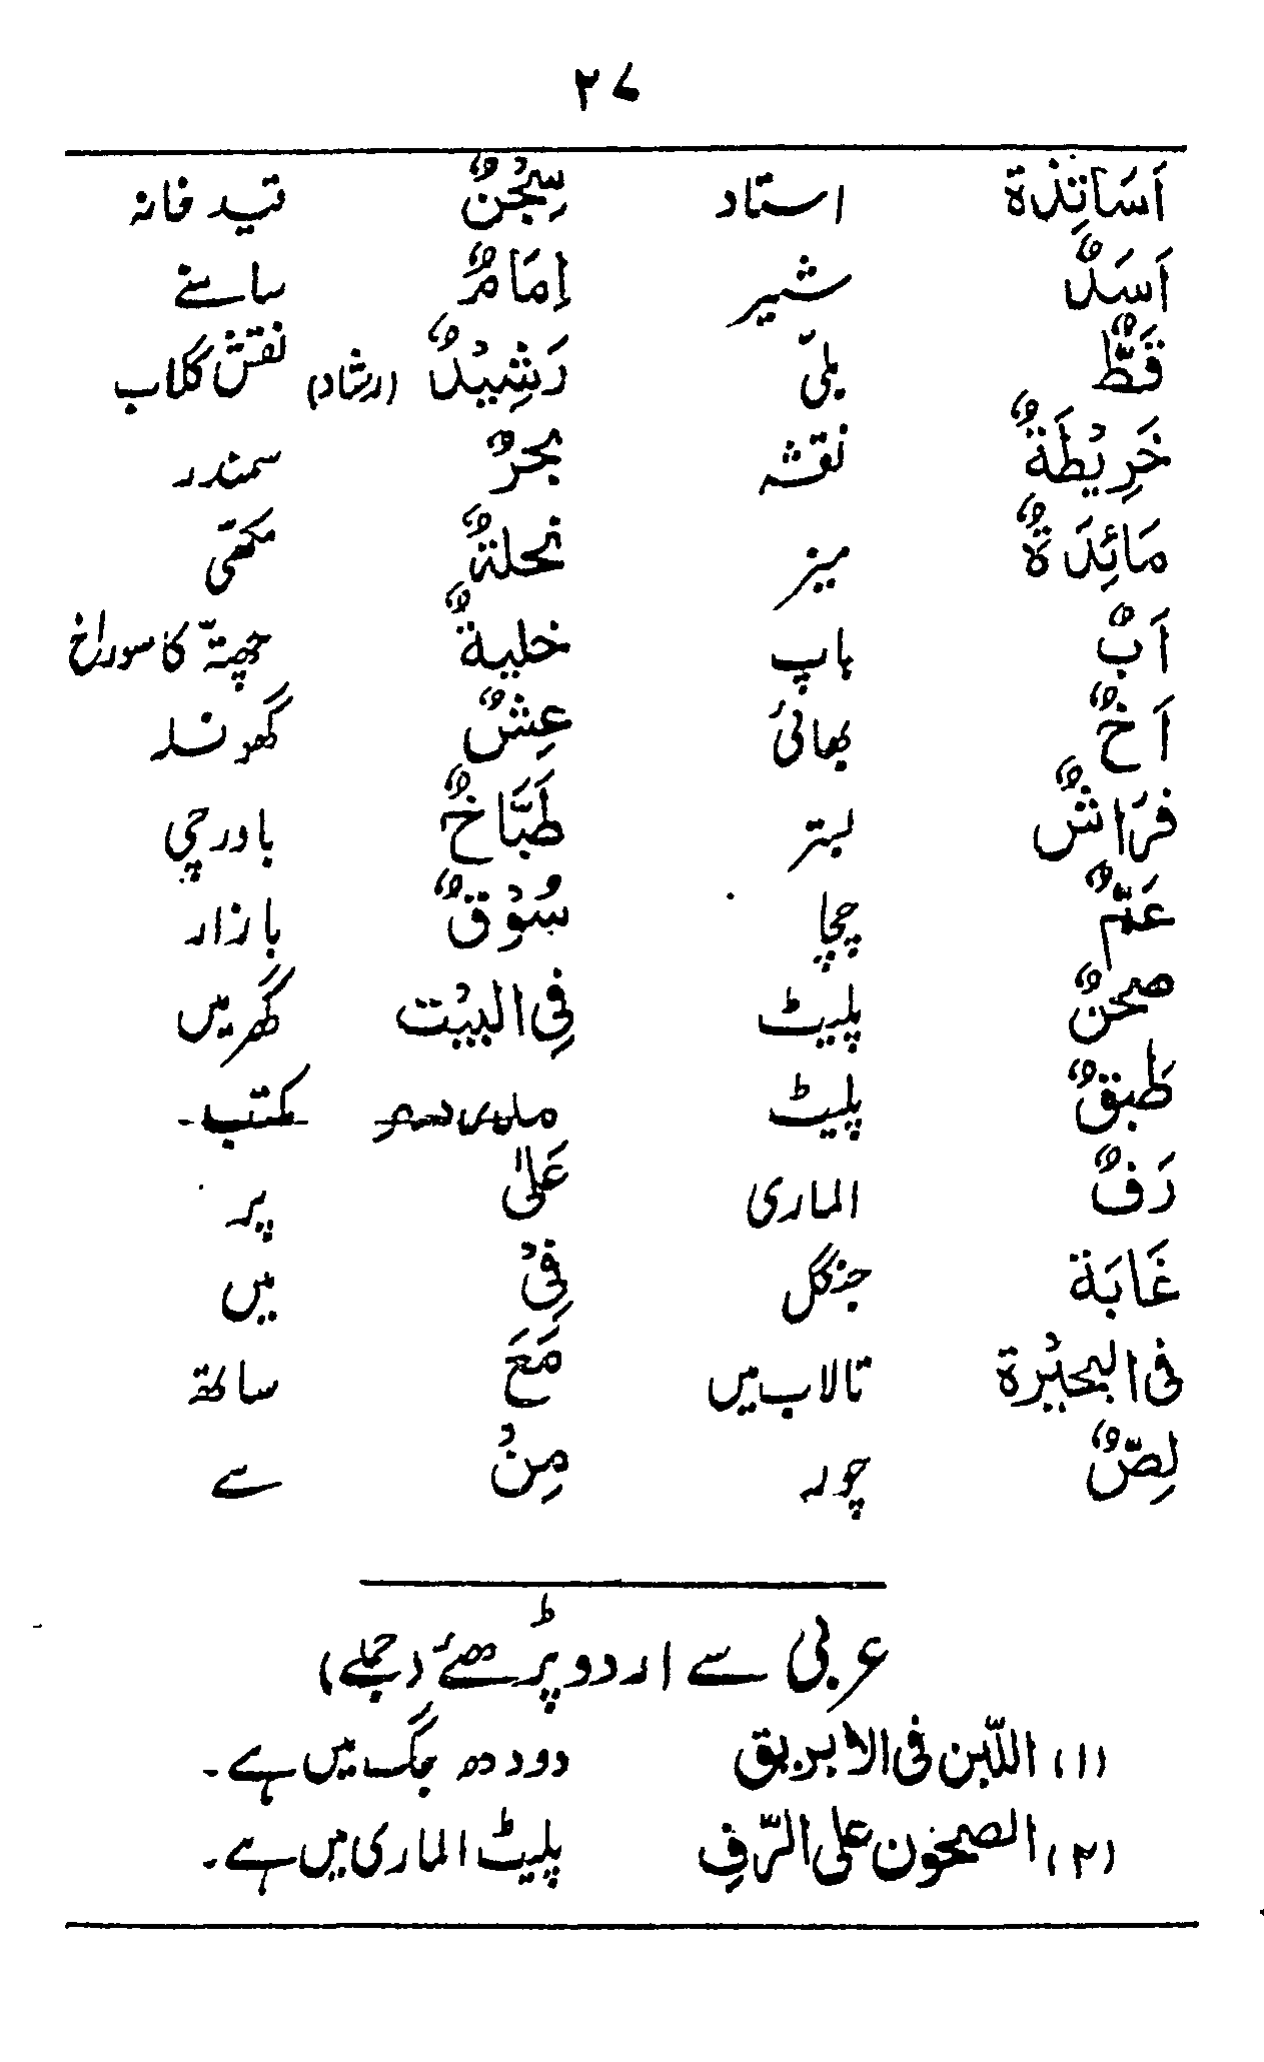 ۲۷
اَسَاتِذْة استاد سِجْنٌ قید خانہ
اَسَدٌ شیر اِمَامٌ سامنے
قَطٌّ بلّی رَشِیْدٌ (ارشاد) نقش گلاب
خَرِیْطَةٌ نقشہ بحرٌ سمندر
مَائِدَةٌ میز نحلةٌ مکھّی
اَبٌ باپ خلیةٌ چھتّہ کا سوراخ
اَخٌ بھائی عِشٌ گھونسلہ
فرَاشٌ بستر طَبَّاخٌ باورچی
عَمٌّ چچا سُوْقٌ بازار
صحنٌ پلیٹ فِی البیْت گھر میں
طبقٌ پلیٹ مدرسہ مکتب۔
رَفٌ الماری عَلیٰ پر
غَابَة جنگل فِیْ میں
فی البحیْرة تالاب میں مَعَ ساتھ
لِصٌّ چور مِنْ سے
عربی سے اردو پڑھئے (جملے)
(۱) اللّبن فی الابریق دودھ جگ میں ہے۔
(۲) الصحون علی الرّفِ پلیٹ الماری میں ہے۔